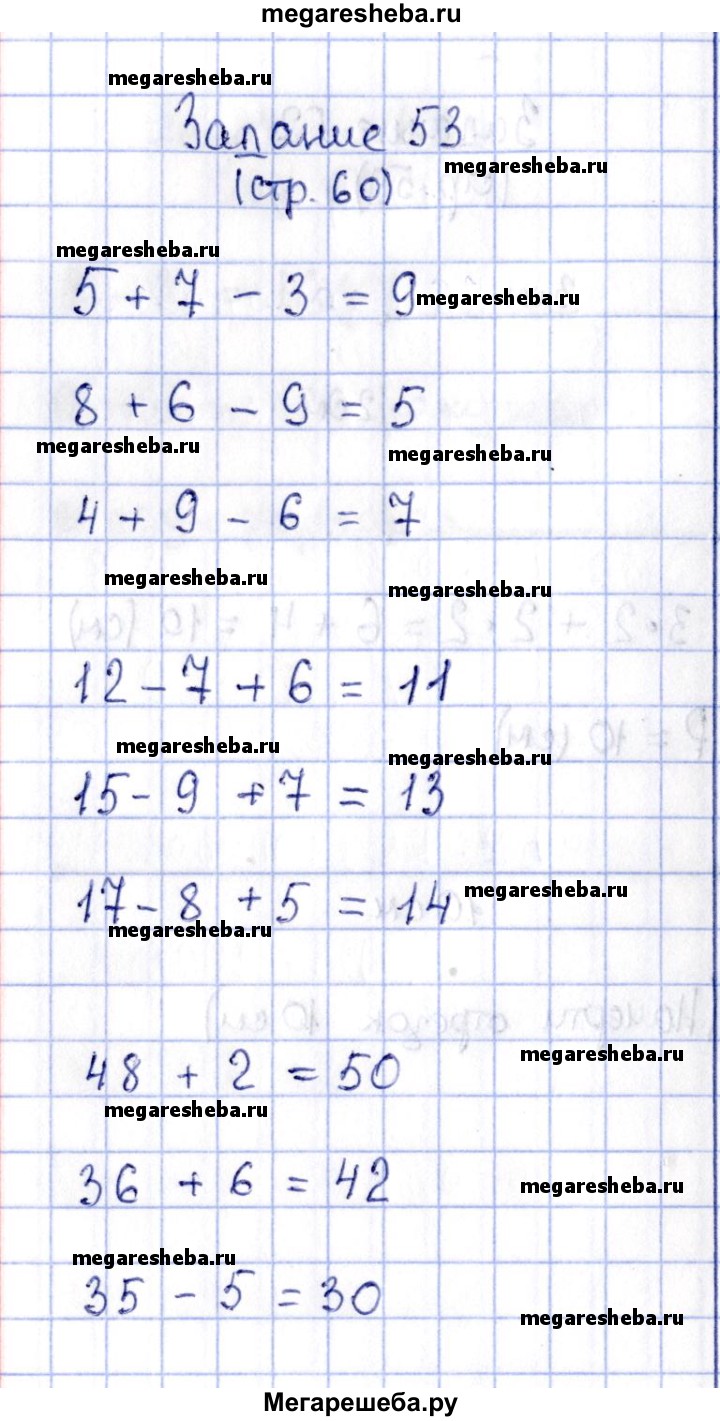 megaresheba.ru
megaresheba.ru
Задание 53
megaresheba.ru
(стр. 60)
megaresheba.ru
5 + 7 - 3 = 9
megaresheba.ru
8 + 6 - 9 = 5
megaresheba.ru
megaresheba.ru
4 + 9 - 6 = 7
megaresheba.ru
megaresheba.ru
12 - 7 + 6 = 11
megaresheba.ru
megaresheba.ru
15 - 9 + 7 = 13
17 - 8 + 5 = 14
megaresheba.ru
megaresheba.ru
48 + 2 = 50
megaresheba.ru
megaresheba.ru
36 + 6 = 42
megaresheba.ru
megaresheba.ru
35 - 5 = 30
megaresheba.ru
Мегарешеба.ру